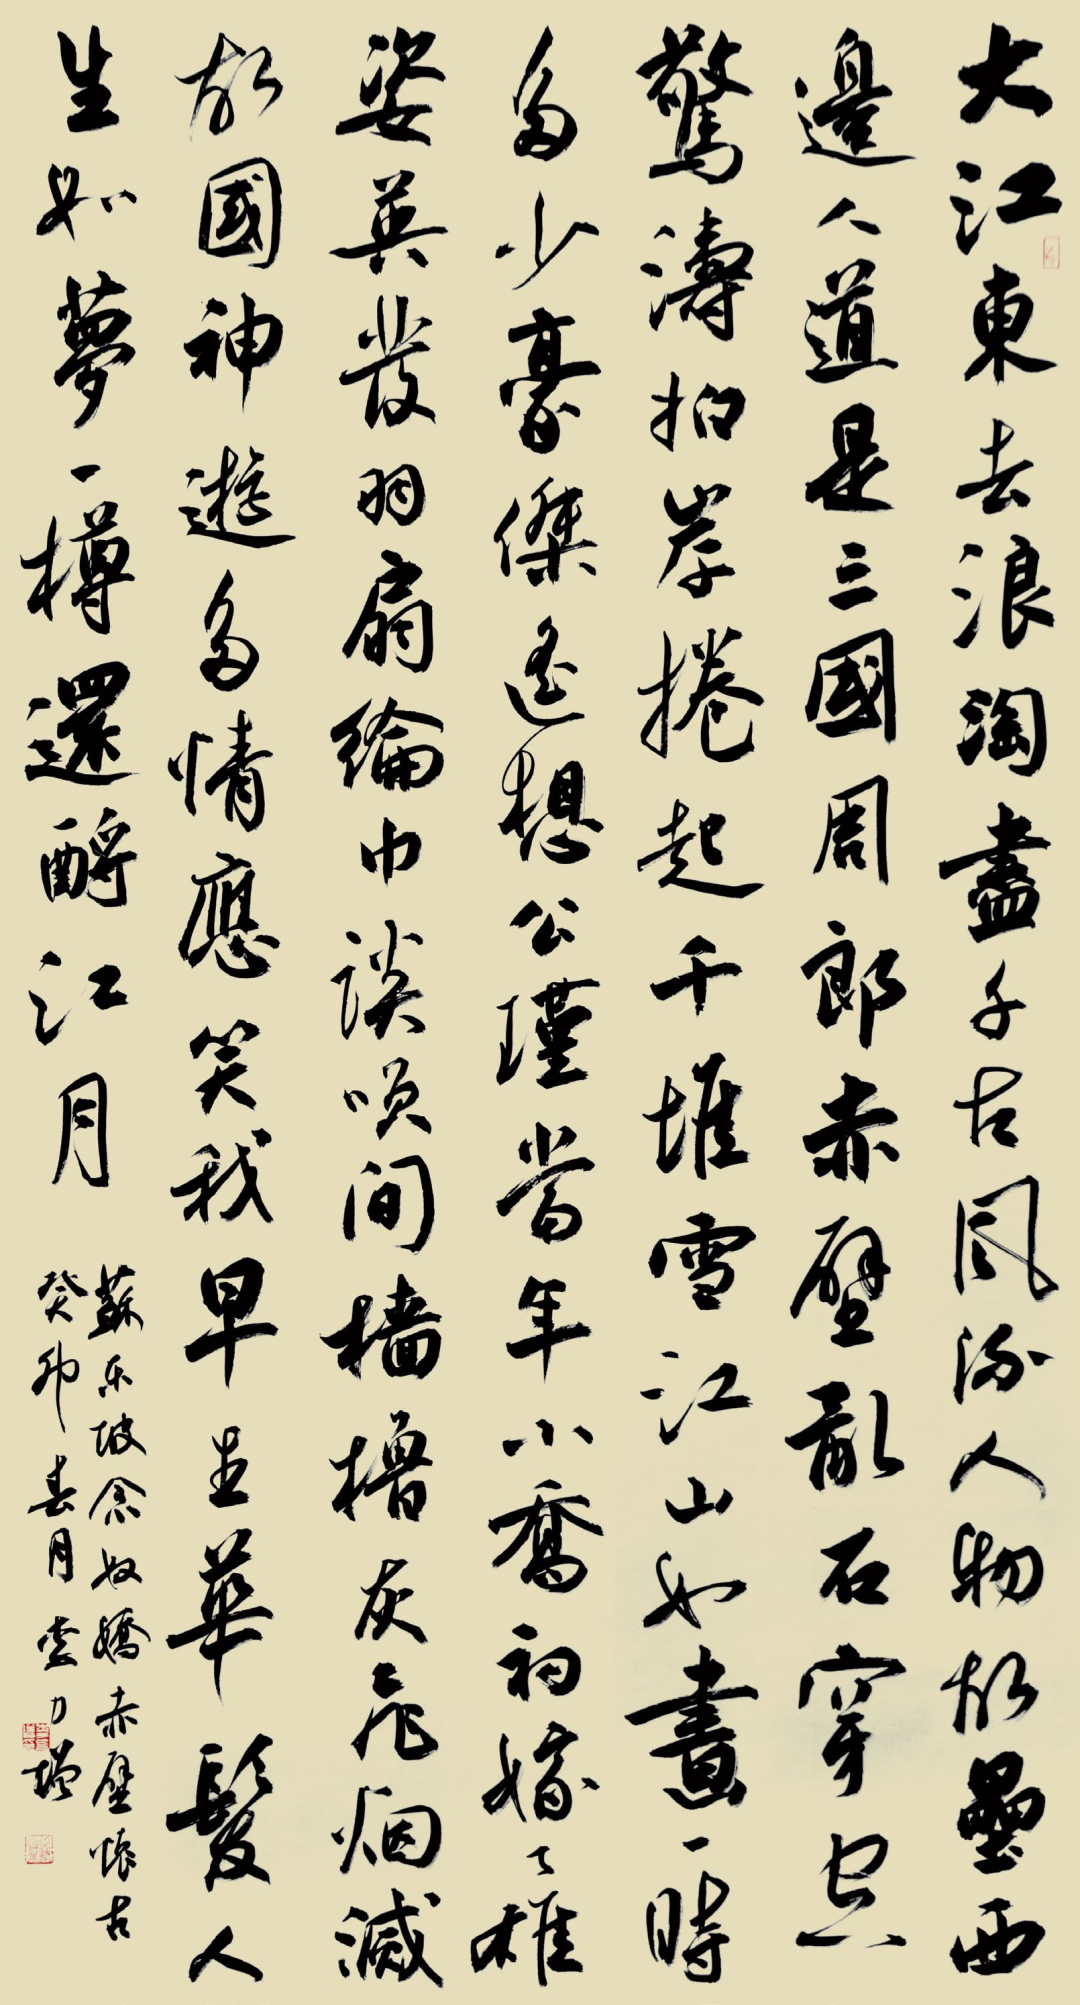 大江東去浪淘盡千古風流人物故壘西
邊人道是三國周郎赤壁亂石穿空
驚濤拍岸捲起千堆雪江山如畫一時
多少豪傑遙想公瑾當年小喬初嫁了雄
姿英發羽扇綸巾談咲間檣櫓灰飛烟滅
故國神遊多情應笑我早生華髮人
生如夢一樽還酹江月
蘇东坡念奴嬌赤壁懷古
癸卯春月